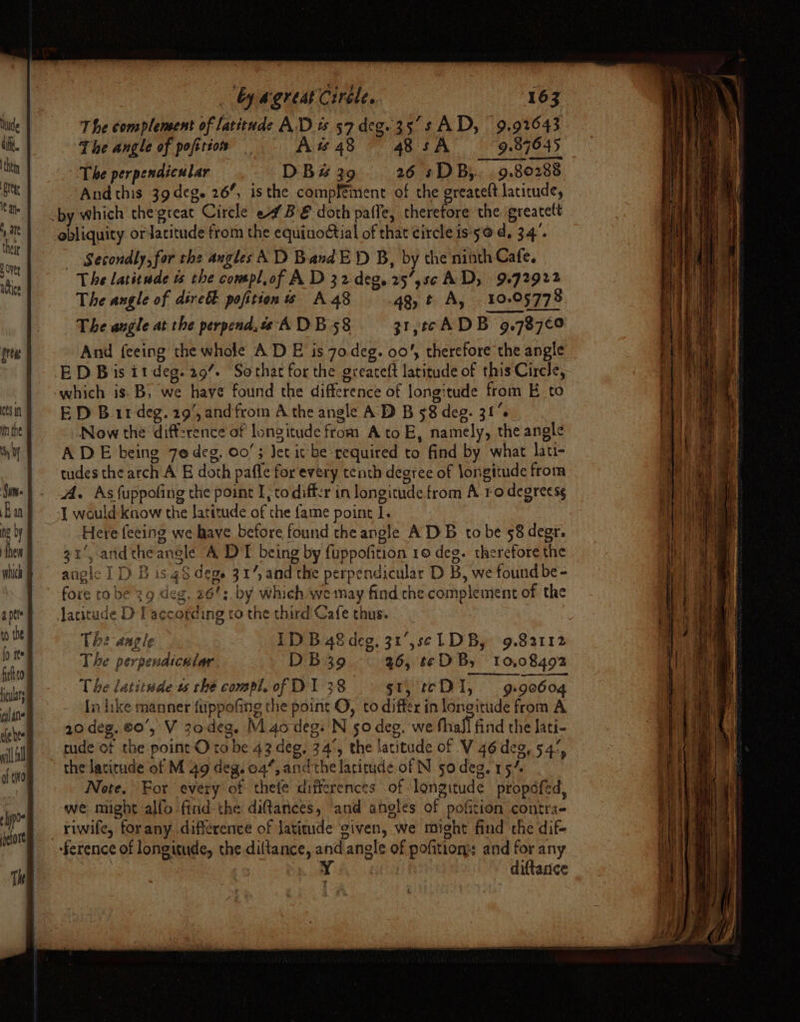 by a great Circle. 163
The complement of latitude A D is 57 deg. 35′ s A D, 9.92643
The angle of position A is 48 48 s A 9.87645
The perpendicular D B is 39 26 s D B, 9.80288
And this 39 deg. 26′, is the complement of the greatest latitude,
by which the great Circle A B E doth passe, therefore the greatest
obliquity or latitude from the equinoctial of that circle is 50 d. 34′.
Secondly, for the angles A D B and E D B, by the ninth Case.
The latitude is the compl. of A D 32 deg. 25′, sc A D, 9.72922
The angle of direct position is A 48 48, t A, 10.05778
The angle at the perpend. is A D B 58 31, tc A D B 9.78700
And seeing the whole A D E is 70 deg. 00′, therefore the angle
E D B is 11 deg. 29′. So that for the greatest latitude of this Circle,
which is B, we have found the difference of longitude from E to
E D B 11 deg. 29′, and from A the angle A D B 58 deg. 31′.
Now the difference of longitude from A to E, namely, the angle
A D E being 70 deg. 00′; let it be required to find by what lati-
tudes the arch A E doth passe for every tenth degree of longitude from
A. As supposing the point I, to differ in longitude from A 10 degrees;
I would know the latitude of the same point I.
Here seeing we have before found the angle A D B to be 58 degr.
31′, and the angle A D I being by supposition 10 deg. therefore the
angle I D B is 48 deg. 31′, and the perpendicular D B, we found be-
fore to be 39 deg. 26′; by which we may find the complement of the
latitude D I according to the third Case thus.
The angle I D B 48 deg. 31′, sc I D B, 9.82112
The perpendicular D B 39 26, tc D B, 10,08492
The latitude is the compl. of D I 38 51, tc D I, 9.90604
In like manner supposing the point O, to differ in longitude from A
20 deg. 00′, V 30 deg. M 40 deg. N 50 deg. we shall find the lati-
tude of the point O to be 43 deg. 34′, the latitude of V 46 deg. 54′,
the latitude of M 49 deg. 04′, and the latitude of N 50 deg. 15′.
Note. For every of these differences of longitude proposed,
we might also find the distances, and angles of position contra-
riwise, for any difference of latitude given, we might find the dif-
ference of longitude, the distance, and angle of position: and for any
Y distance